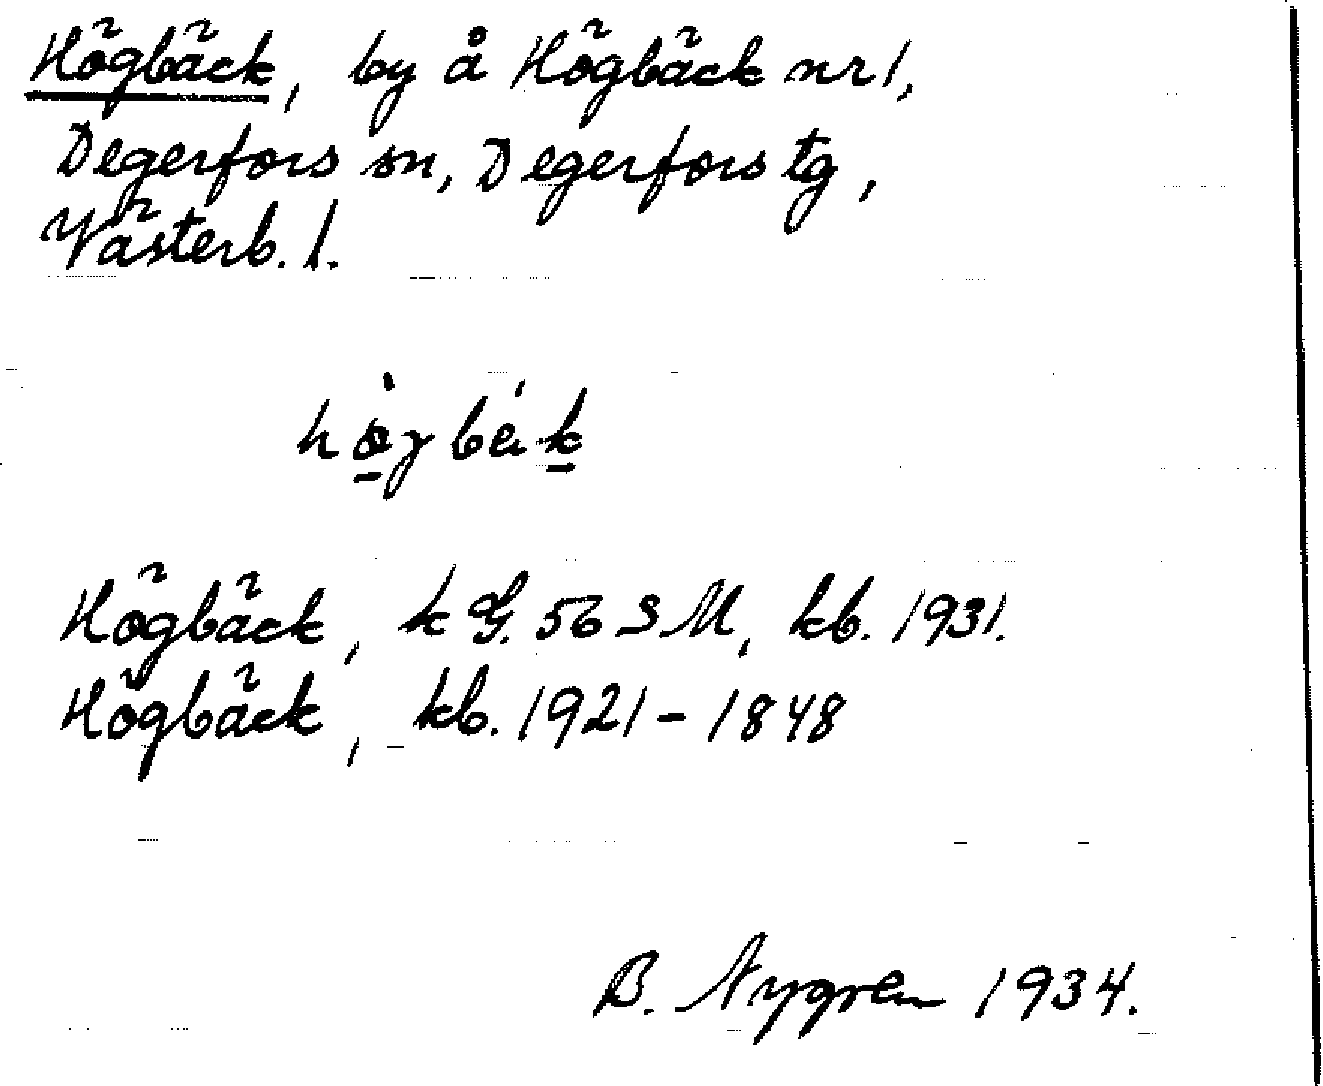 Högbäck, by å Högbäck nr 1,
Degerfors sn, Degerfors tg,
Västerb. l.
Högbäck, k G. 56 SM, kb. 1931.
Högbäck, kb. 1921 - 1848
B. Nygren 1934.